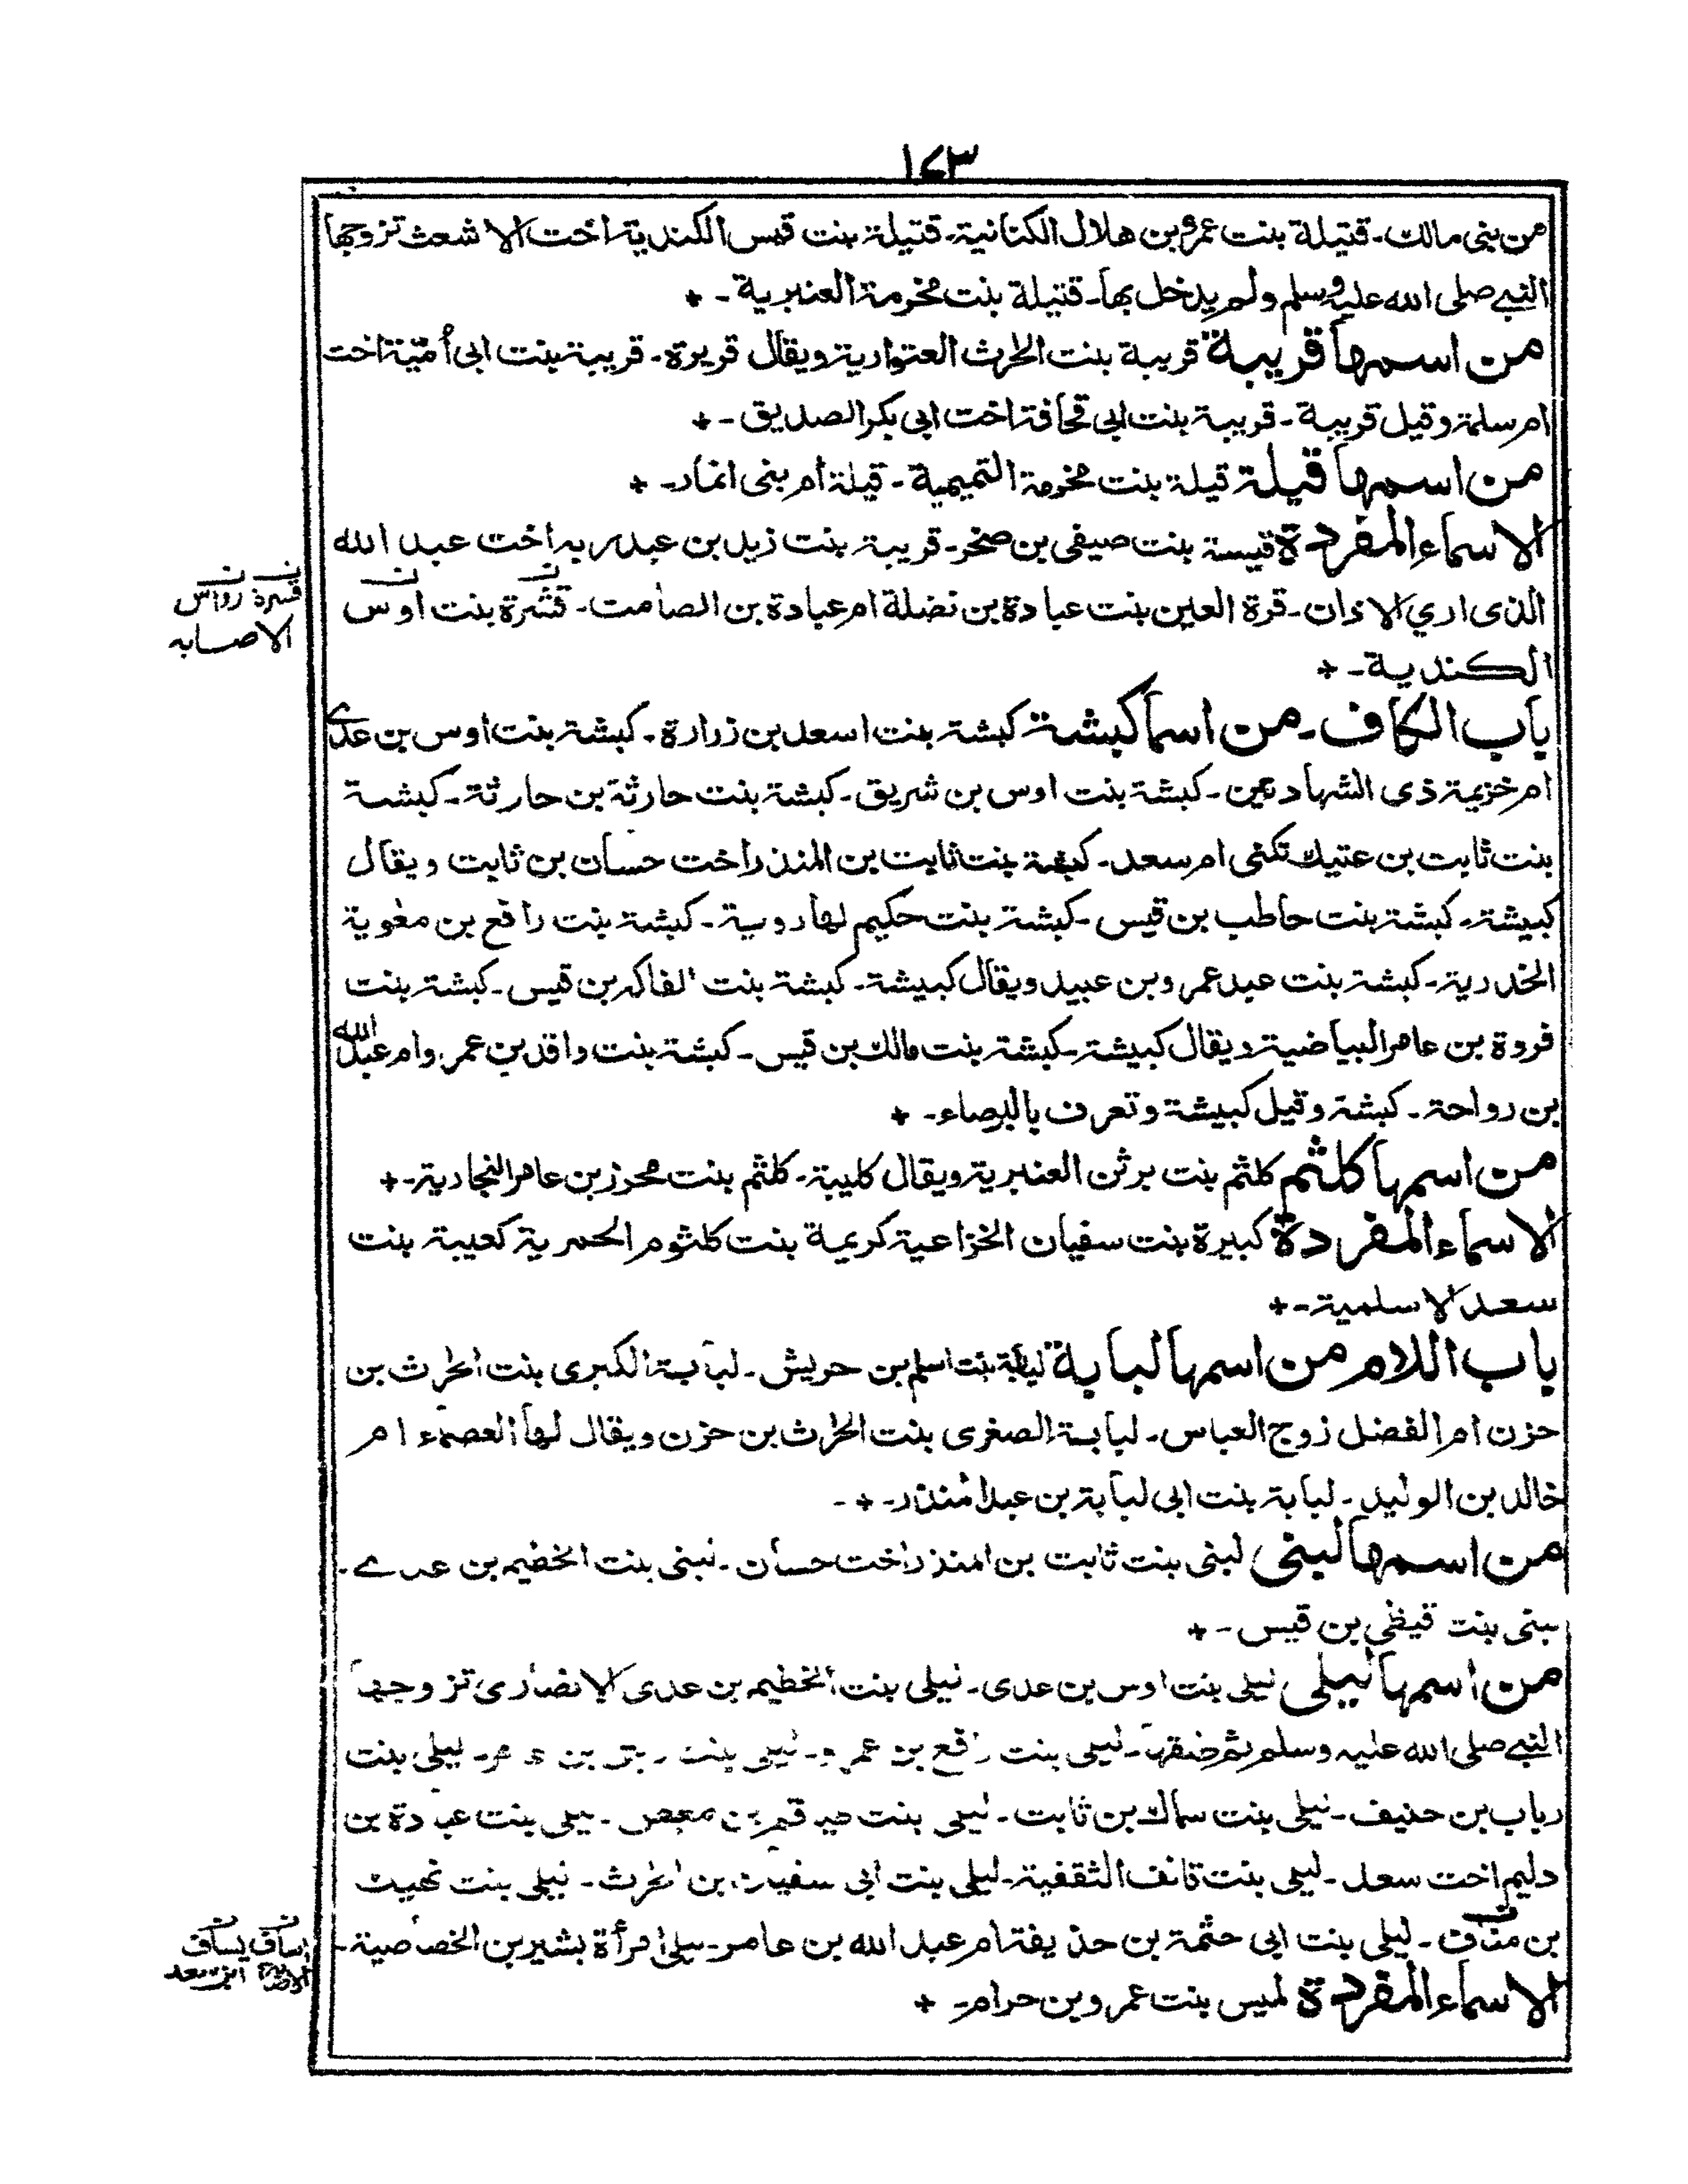 ١٧٣
من بنى مالك ـ قتيلة بنت عمرو بن هلال الكنانية ـ قتيلة بنت قيس الكندية اخت الاشعث تزوجها
النبي صلى الله عليه وسلم ولم يدخل بها ـ قتيلة بنت مخرمة العنبرية ـ +
من اسمها قريبة قريبة بنت الحرث العتوارية ويقال قريرة ـ قريبة بنت ابى أمية اخت
ام سلمة وقيل قريبة ـ قريبة بنت ابي قحافة اخت ابي بكر الصديق ـ +
من اسمها قيلة قيلة بنت مخرمة التميمية ـ قيلة ام بنى انمار ـ +
الاسماء المفردة قيسة بنت صيفى بن صخر ـ قريبة بنت زيد بن عبد ربه اخت عبد الله
الذى اري الاذان ـ قرة العين بنت عبادة بن نضلة ام عبادة بن الصامت ـ قتثرة بنت اوس
قسرة رواس
الاصابه
الكندية ـ +
باب الكاف ـ من اسما كبشة كبشة بنت اسعد بن زرارة ـ كبشة بنت اوس بن عدے
ام خزيمة ذى الشهادتين ـ كبشة بنت اوس بن شريق ـ كبشة بنت حارثة بن حارثة ـ كبشة
بنت ثابت بن عتيك تكنى ام سعد ـ كبشة بنت ثابت بن المنذر اخت حسان بن ثابت ويقال
كبيشة ـ كبشة بنت حاطب بن قيس ـ كبشة بنت حكيم لها روية ـ كبشة بنت رافع بن معوية
الخدرية ـ كبشة بنت عبد عمرو بن عبيد ويقال كبيشة ـ كبشة بنت الفاكه بن قيس ـ كبشة بنت
فروة بن عامر البياضية ويقال كبيشة ـ كبشة بنت مالك بن قيس ـ كبشة بنت واقد بن عمرو ام عبد الله
بن رواحة ـ كبشة وقيل كبيشة وتعرف بالبرصاء ـ +
من اسمها كلثم كلثم بنت برثن العنبرية ويقال كليبة ـ كلثم بنت محرز بن عامر النجارية ـ +
الاسماء المفردة كبيرة بنت سفيان الخزاعية كريمة بنت كلثوم الحمرية كعيبة بنت
سعد الاسلمية ـ +
باب اللام من اسمها لبابة لبابة بنت اسلم بن حريش ـ لبابة الكبرى بنت الحرث بن
حزن ام الفضل زوج العباس ـ لبابة الصغرى بنت الحرث بن حزن ويقال لها العصماء ام
خالد بن الوليد ـ لبابة بنت ابى لبابة بن عبد المنذر ـ + ـ
من اسمها لبنى لبنى بنت ثابت بن المنذر اخت حسان ـ لبنى بنت الخطيم بن عدے ـ
لبنى بنت قيظى بن قيس ـ +
من اسمها ليلى ليلى بنت اوس بن عدى ـ ليلى بنت الخطيم بن عدى الانصارى تزوجها
النبي صلى الله عليه وسلم ثم ـ ليلى بنت رافع بن عمرو ـ ليلى بنت ـ ليلى بنت
رباب بن حنيف ـ ليلى بنت سماك بن ثابت ـ ليلى بنت ـ ليلى بنت عبادة بن
دليم اخت سعد ـ ليلى بنت قانف الثقفية ـ ليلى بنت ابى سفيان بن الحرث ـ ليلى بنت نهيك
بن ـ ليلى بنت ابى حثمة بن حذيفة ام عبد الله بن عامر ـ ليلى امرأة بشير بن الخصاصية ـ
اساف يساف
الاصابه ابن سعد
الاسماء المفردة لميس بنت عمرو بن حرام ـ +